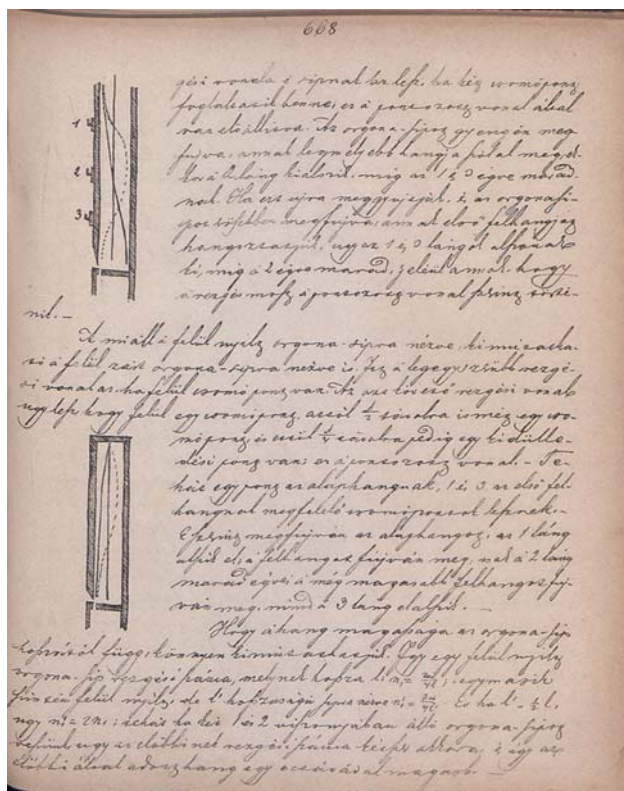 668
gési vonala é sípnak az lesz, ha két csomópont
foglaltatik benne, ez a pontozott vonal által
van előállítva. Az orgona-sípot gyengén meg-
fujva, annak legmélyebb hangja által
a 2 láng kialszik, míg az 1 és 3 égve marad-
nak. Ha ezt ujra meggyujtjuk, és az orgonasí-
pot erősebben megfujva, annak első felhangját
hangoztatjuk, ugy az 1 és 3 lángok alszanak
ki, míg a 2 égve marad, jeléül annak, hogy
a rezgés most a pontozott vonal szerint törté-
nik. –
A mi áll a felül nyilt orgona-sipra nézve, kimutatha-
tó a felül zárt orgona-sipra nézve is. Itt a legegyszerűbb rezgé-
si vonal az, ha felül csomópont van. Az azt követő rezgési vonal
ugy lesz, hogy felül egy csomópont, attól távolra ismét egy cso-
mópont, és ettől távolra pedig egy kidülle-
dési pont van; ez a pontozott vonal. – Te-
hát egy pont az alaphangnak, 1 és 3 az első fel-
hangnak megfelelő csomópontok lesznek. –
E szerint megfujván az alaphangot, az 1 láng
alszik el, a felhangot fujván meg, csak a 2 láng
marad égve; a még magasabb felhangot fuj-
ván meg, mind a 3 láng elalszik. –
Hogy a hang magassága az orgona-síp
hosszától függ, könnyen kimutathatjuk. Igy egy felül nyilt
orgona-síp rezgési száma, melynek hossza l: n₁ = ; egy másik
szintén felül nyilt, de l' hosszúságú sípra nézve n₁' = . És ha l' = ½ l,
ugy n₁' = 2n₁; tehát ha két 1 és 2 viszonyában álló orgona-sípot
veszünk, ugy az előbbinek rezgési száma kétszer akkora, s így az
előbbi által adott hang egy octávával magasb. –
1
2
3